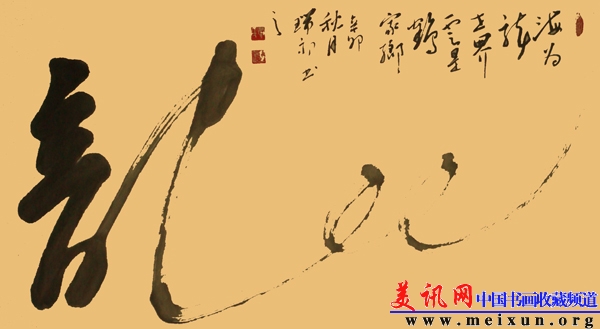 龍
海为
龍
世界
雲是
鶴
家鄉
辛卯
秋月
美讯网 中国书画收藏频道
www.meixun.org